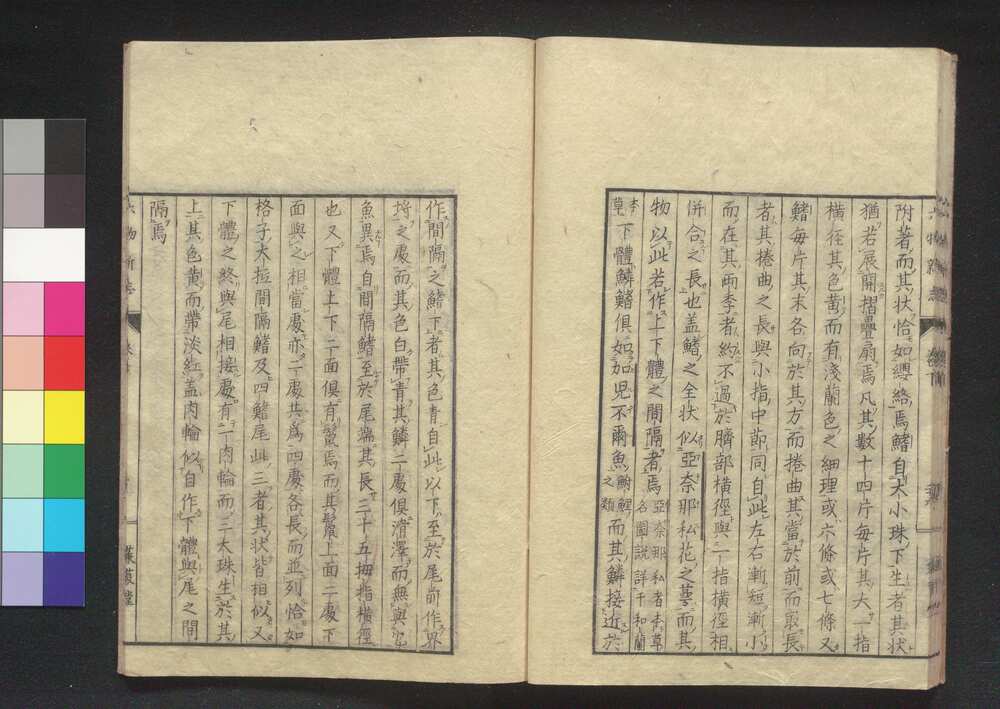 附著而其狀恰如纓絡焉鰭自大小珠下生者其狀
猶若展開摺疊扇焉凡其數十四片每片其大一指
橫徑其色黃而有淺蘭色之細理或六條或七條又
鰭每片其末各向於其方而捲曲其當於前而最長
者其捲曲之長與小指中節同自此左右漸短漸小
而在其兩季者約不過於臍部橫徑與一指橫徑相
併合之長也蓋鰭之全狀似亞奈那私花之萼而其
物以此若作上下體之間隔者焉亞奈那私者本草名圖說詳于和蘭
本草下體鱗鰭俱如加兒不爾魚鮒鯉之類而其鱗接近於
作間隔之鰭下者其色青自此以下至於尾前作界
捋之處而其色白帶青其鱗二處俱滑澤而無與凡
魚異焉自間隔鰭至於尾端其長三十五拇指橫徑
也又下體上下二面俱有鬣焉而其鬣上面二處下
面與之相當處亦二處共為四處各長而並列恰如
格子大抵間隔鰭及四鰭尾此三者其狀皆相似又
下體之終與尾相接處有一肉輪而三大珠生於其
上其色黃而帶淡紅蓋肉輪似自作下體與尾之間
隔焉
六物新志